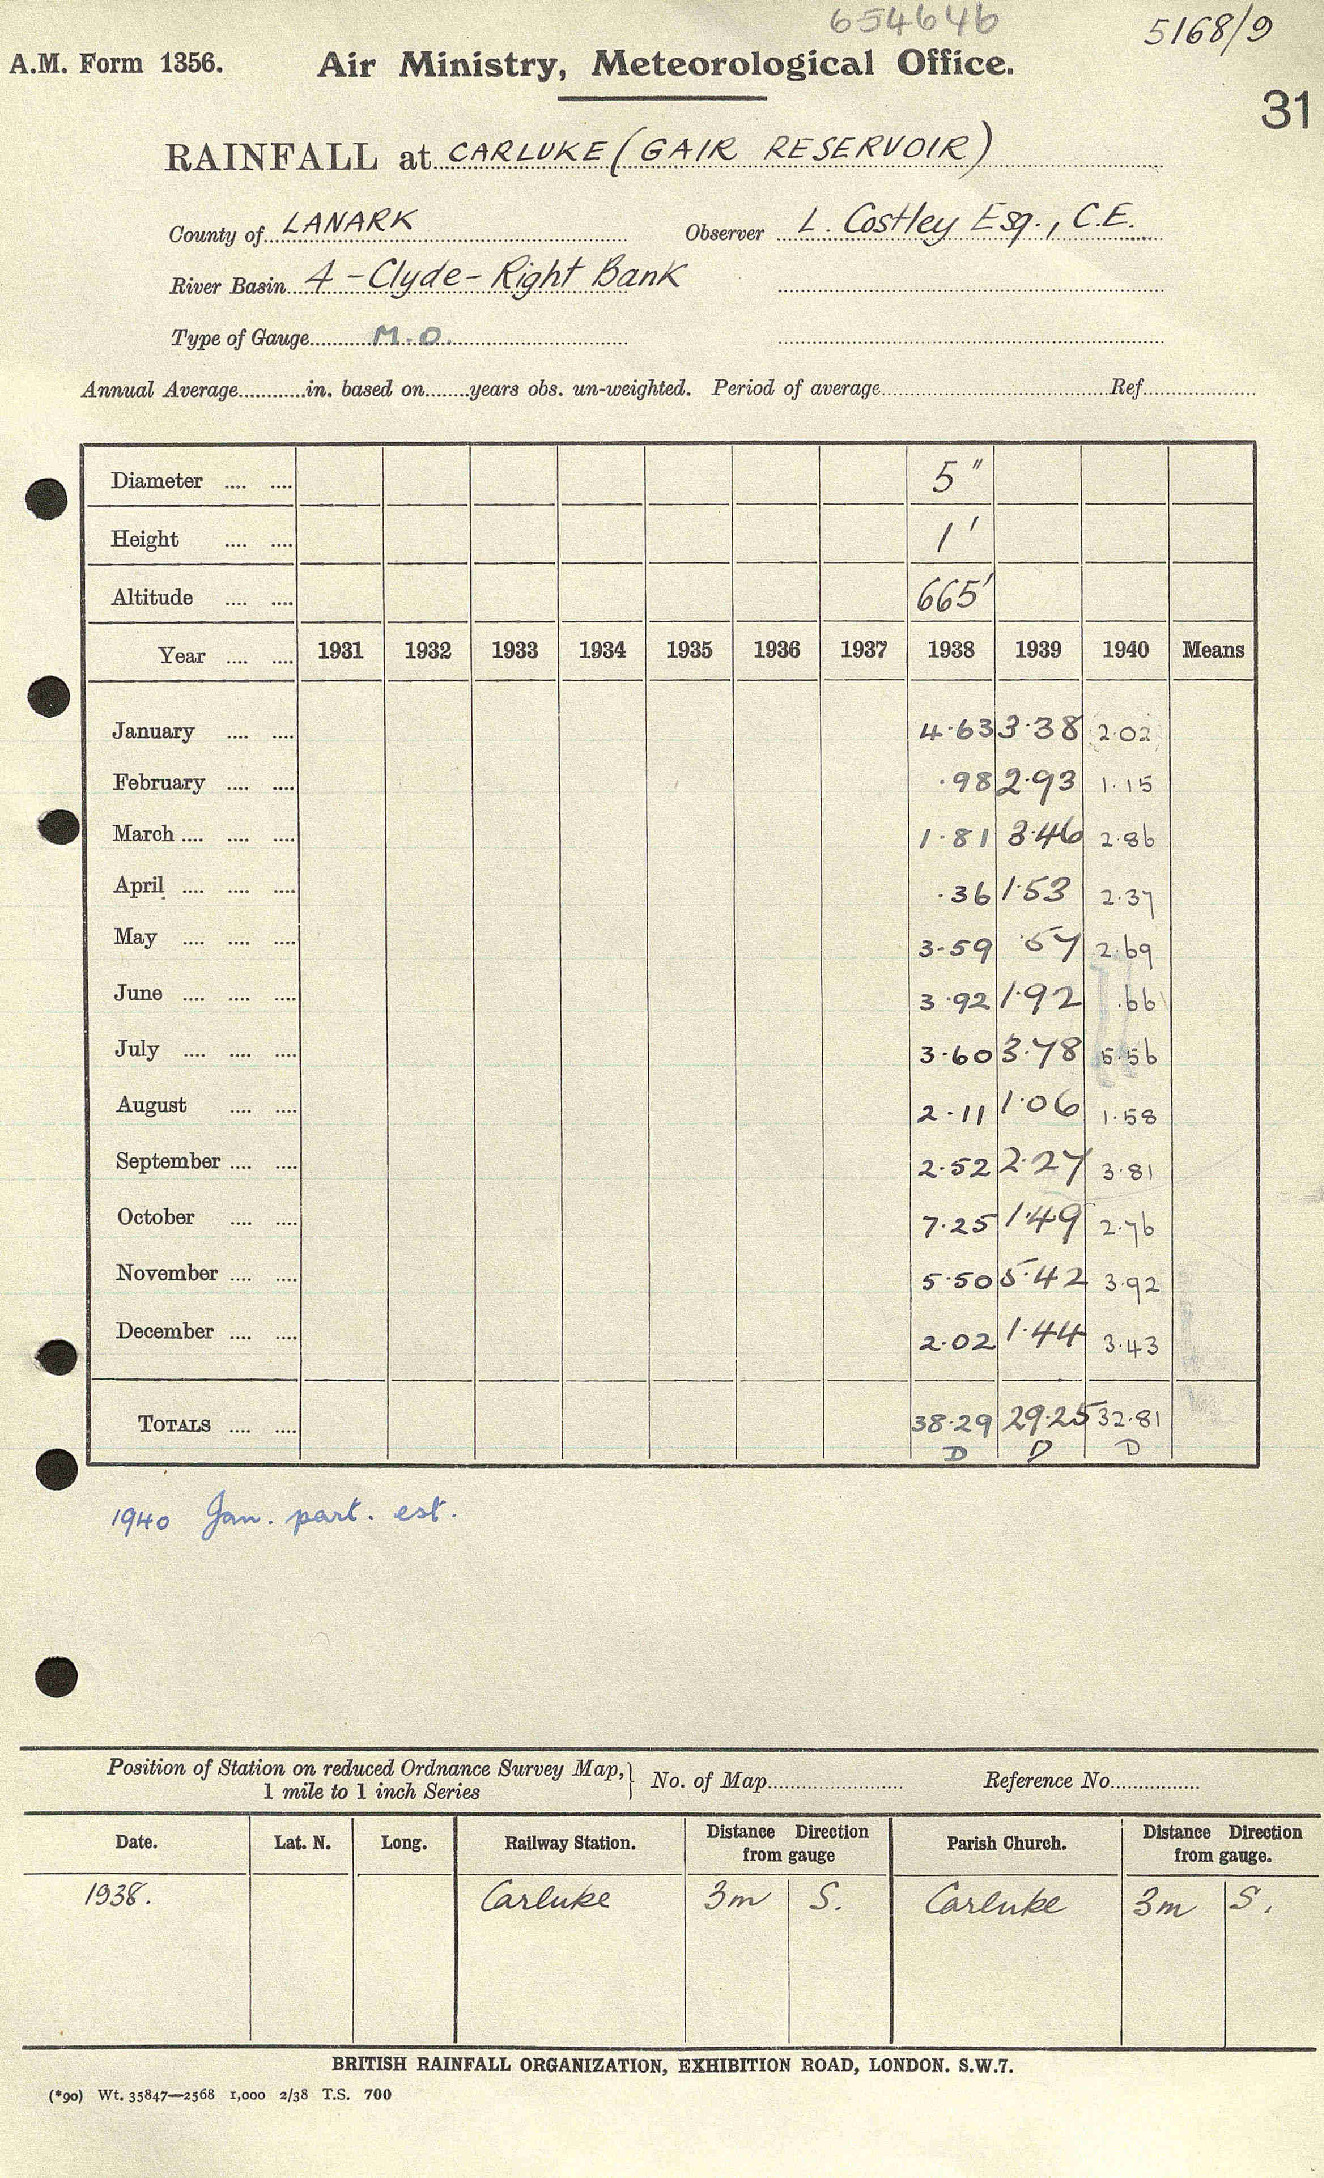 654646
5168/9
A.M. Form 1356. Air Ministry, Meteorological Office.
31
RAINFALL at CARLUKE (GAIR RESERVOIR)
County of LANARK Observer L. Costley Esq., C.E.
River Basin 4 - Clyde - Right Bank
Type of Gauge M.O.
Annual Average............in. based on.......years obs. un-weighted. Period of average.......Ref.......
Diameter .... .... 5"
Height .... .... 1'
Altitude .... .... 665'
Year .... .... 1931 1932 1933 1934 1935 1936 1937 1938 1939 1940 Means
January .... .... 4.63 3.38 2.02
February .... .... .98 2.93 1.15
March .... .... .... 1.81 3.46 2.86
April .... .... .... .36 1.53 2.37
May .... .... .... 3.59 .57 2.69
June .... .... .... 3.92 1.92 .66
July .... .... .... 3.60 3.78 5.56
August .... .... 2.11 1.06 1.58
September .... .... 2.52 2.27 3.81
October .... .... 7.25 1.49 2.76
November .... .... 5.50 5.42 3.92
December .... .... 2.02 1.44 3.43
TOTALS .... .... 38.29 29.25 32.81
D D D
1940 Jan. part. est.
Position of Station on reduced Ordnance Survey Map, 1 mile to 1 inch Series } No. of Map....... Reference No.......
Date. Lat. N. Long. Railway Station. Distance Direction from gauge Parish Church. Distance Direction from gauge.
1938. Carluke 3m S. Carluke 3m S.
BRITISH RAINFALL ORGANIZATION, EXHIBITION ROAD, LONDON. S.W.7.
(*90) Wt. 35847—2568 1,000 2/38 T.S. 700